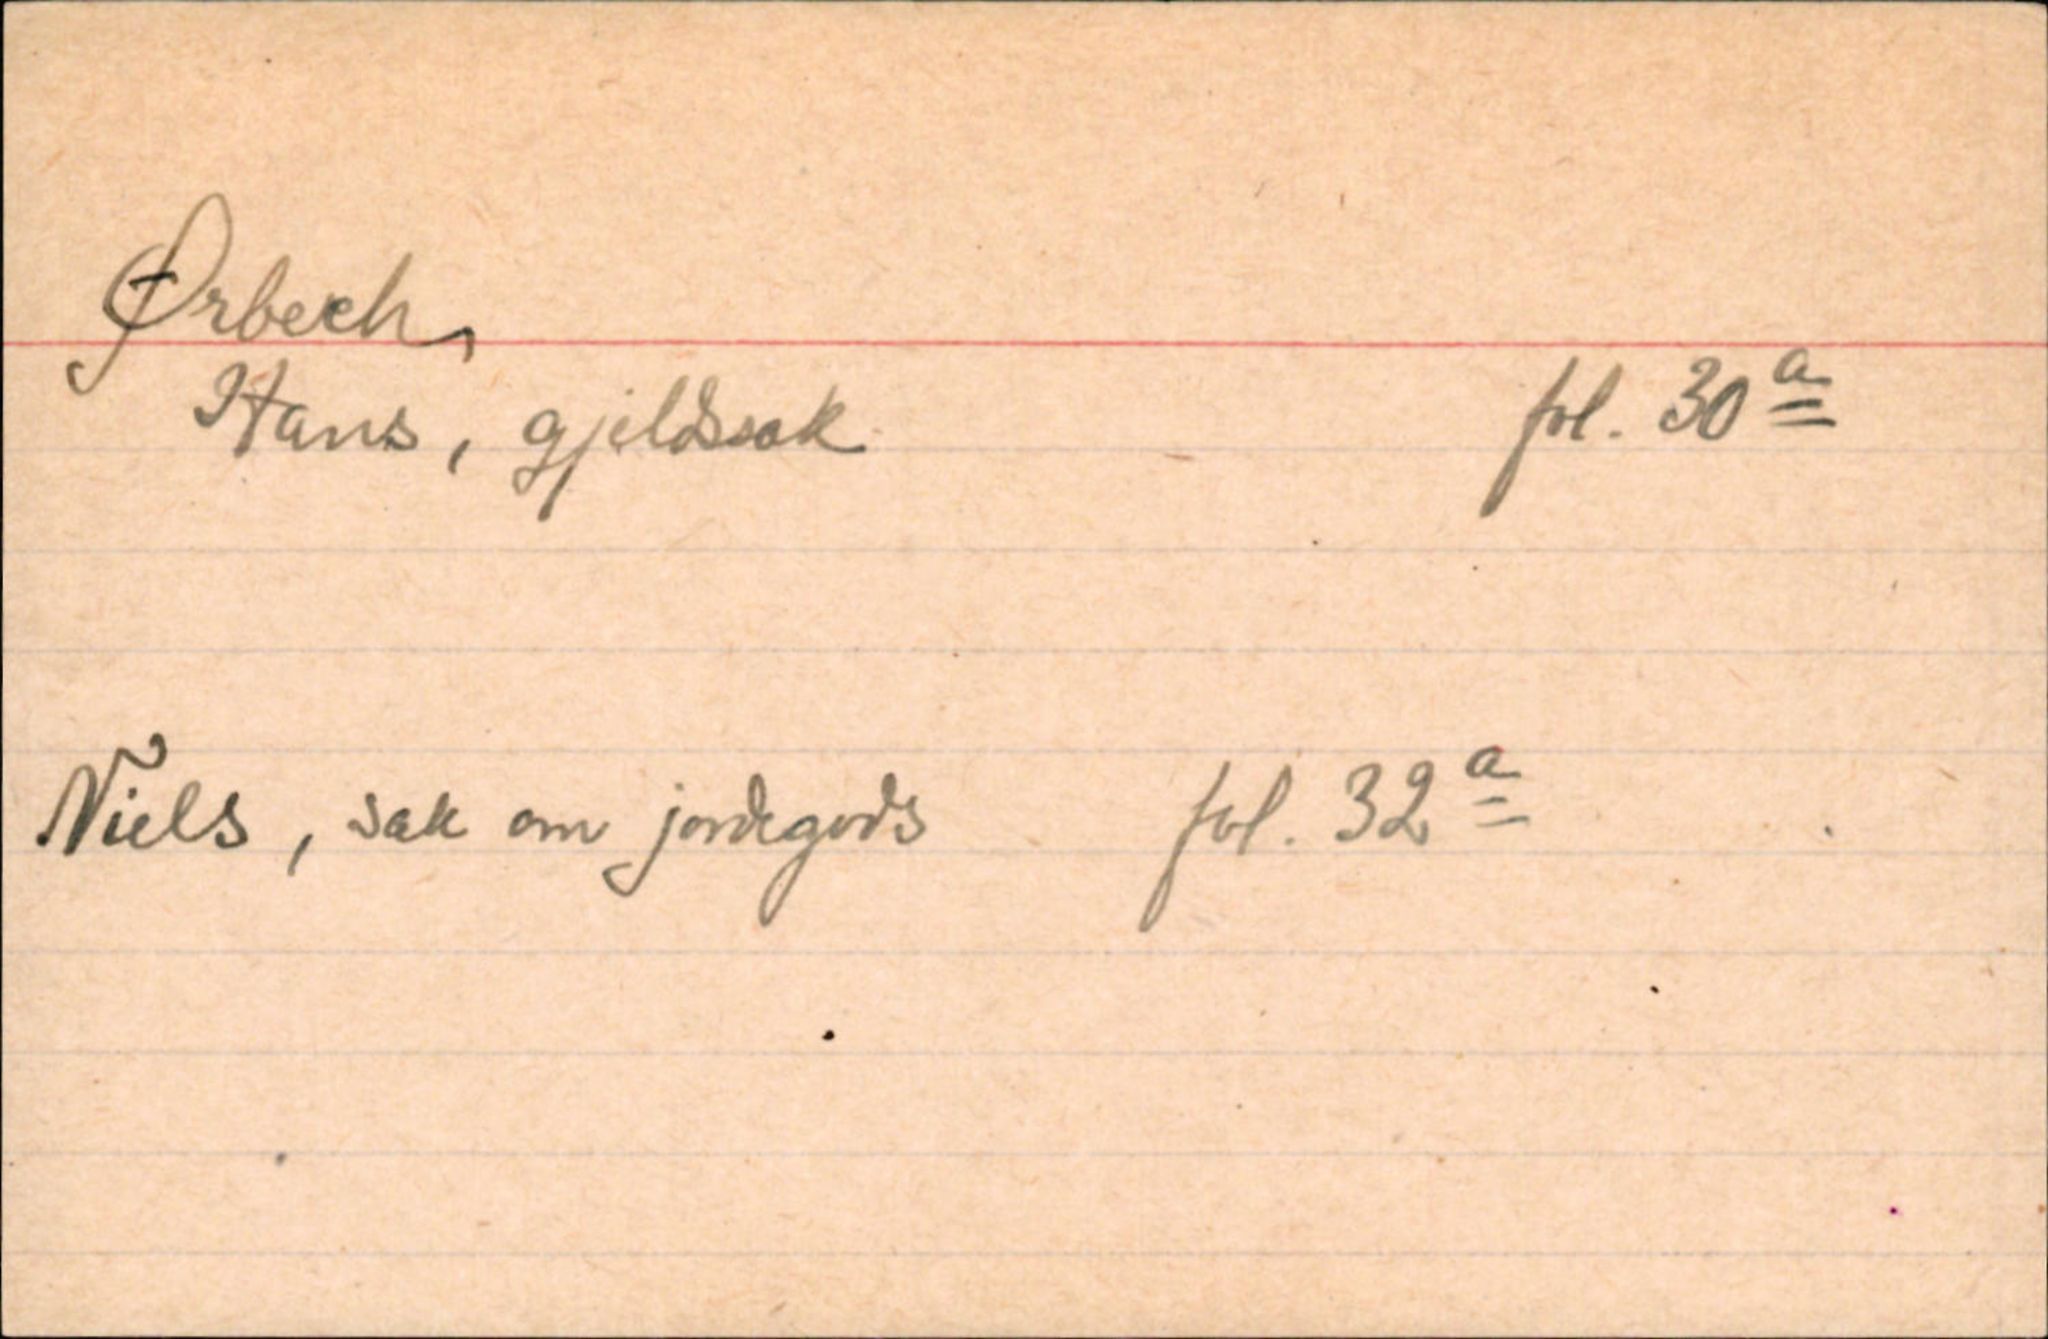 Ørbech,
Hans, gjeldssak fol. 30ª
Niels, sak om jordegods fol. 32ª